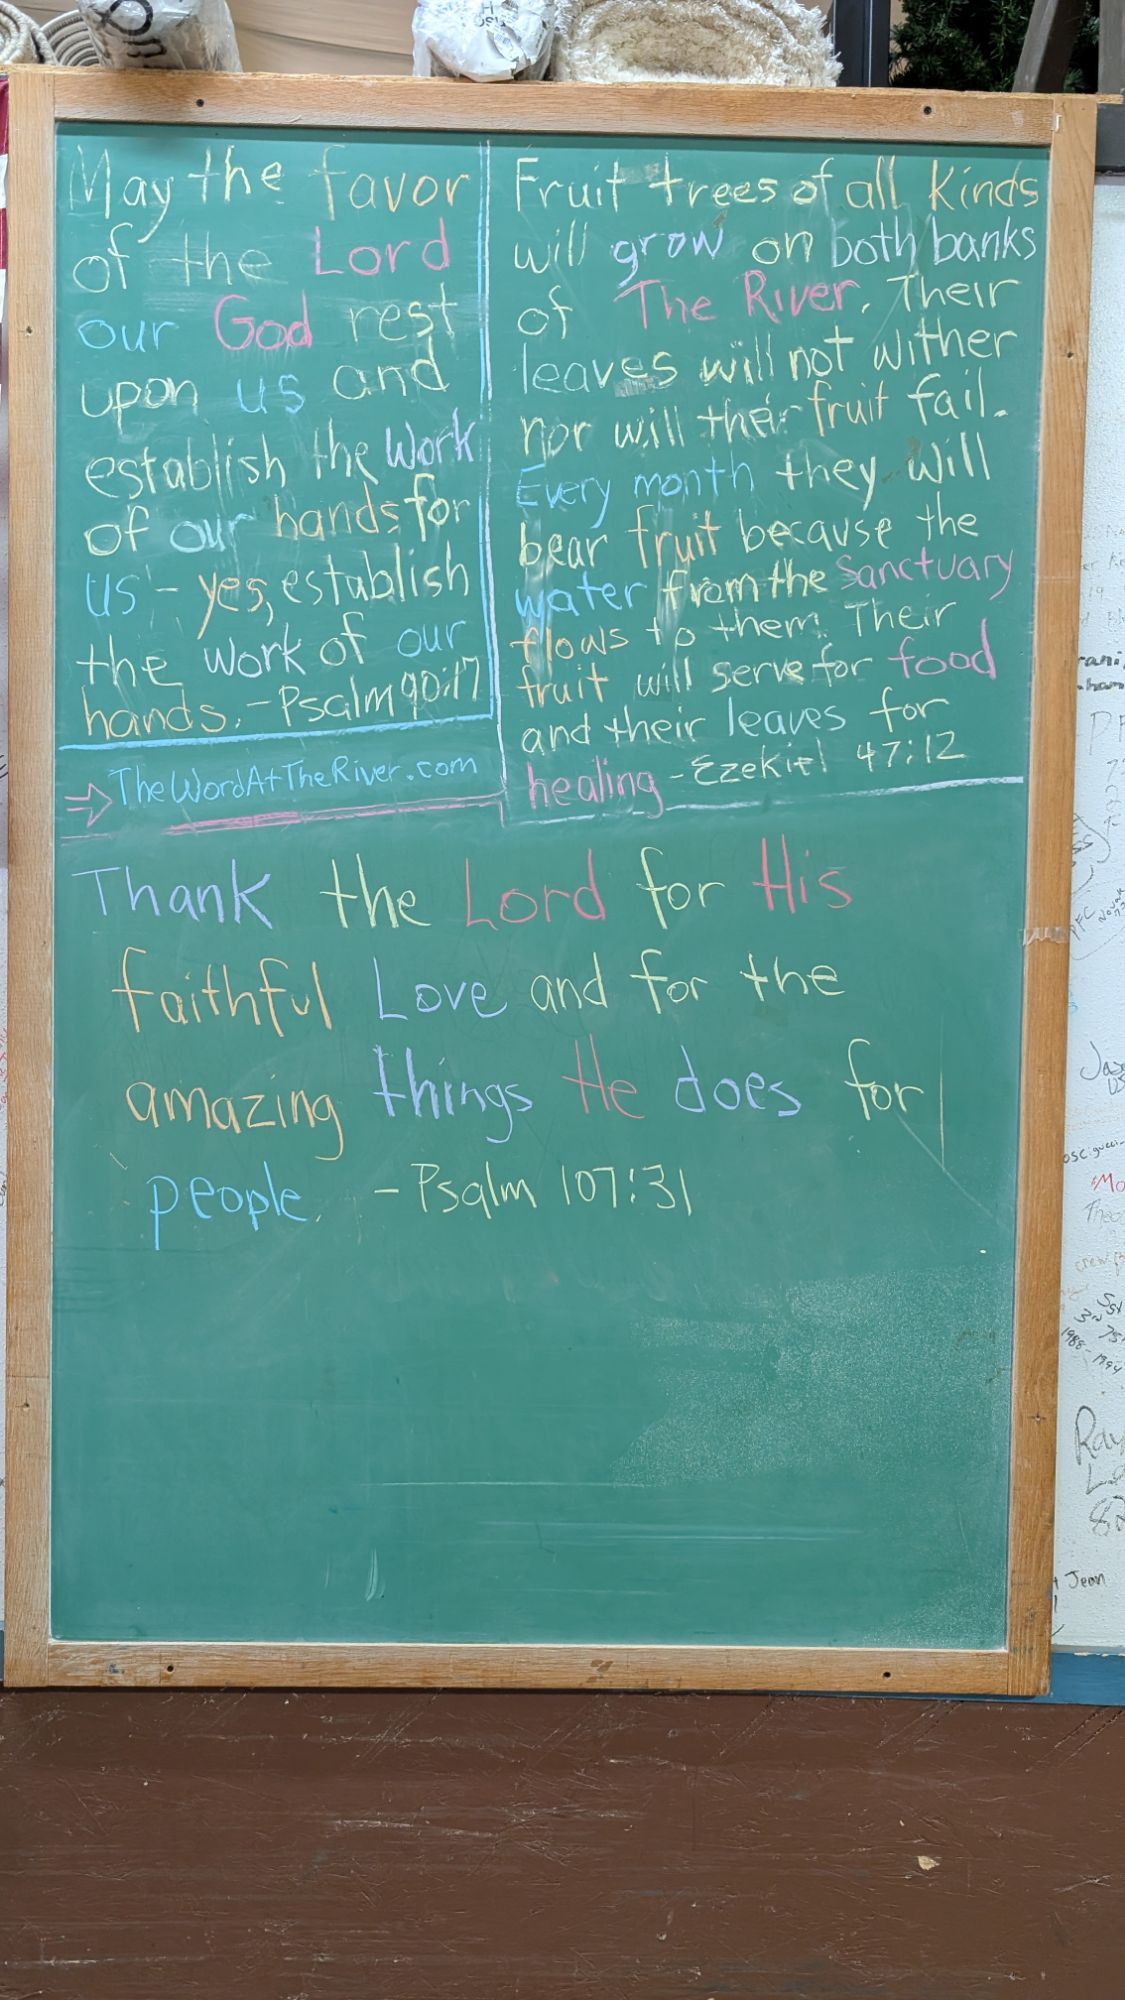 May the favor
of the Lord
our God rest
upon us and
establish the work
of our hands for
us - yes, establish
the work of our
hands. - Psalm 90:17
TheWordAtTheRiver.com
Fruit trees of all kinds
will grow on both banks
of The River. Their
leaves will not wither
nor will their fruit fail.
Every month they will
bear fruit because the
water from the Sanctuary
flows to them. Their
fruit will serve for food
and their leaves for
healing - Ezekiel 47:12
Thank the Lord for His
faithful Love and for the
amazing things He does for
people. - Psalm 107:31
Jeon